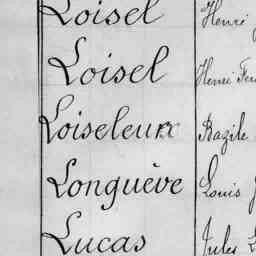 Loisel Henri
Loisel Henri
Loiseleux Bazile
Longuève Louis
Lucas Jules